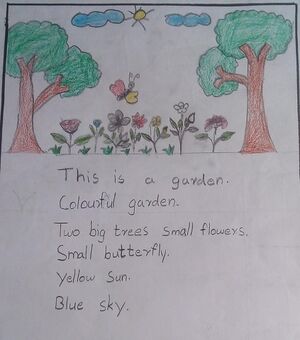 This is a garden.
Colourful garden.
Two big trees small flowers.
Small butterfly.
Yellow Sun.
Blue sky.